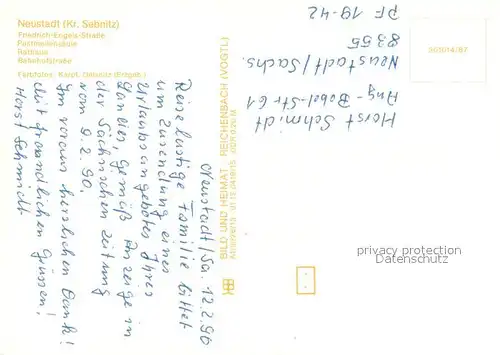 Neustadt (Kr. Sebnitz)
Friedrich-Engels-Straße
Postmeilensäule
Rathaus
Bahnhofstraße
Farbfotos:
BILD UND HEIMAT REICHENBACH (VOGTL)
Neustadt/Sa. 12.2.90
Reiselustige Familie bittet
um Zusendung eines
Urlaubsangebotes Ihres
Landes, gemäß Anzeige in
der Sächsischen Zeitung
vom 9.2.90.
Im voraus herzlichen Dank!
Mit freundlichen Grüssen!
Horst Schmidt
Horst Schmidt
Aug-Bebel-Str 61
Neustadt/Sachs.
8355
PF 19-42
privacy protection
www.ansichtskarten-center.de